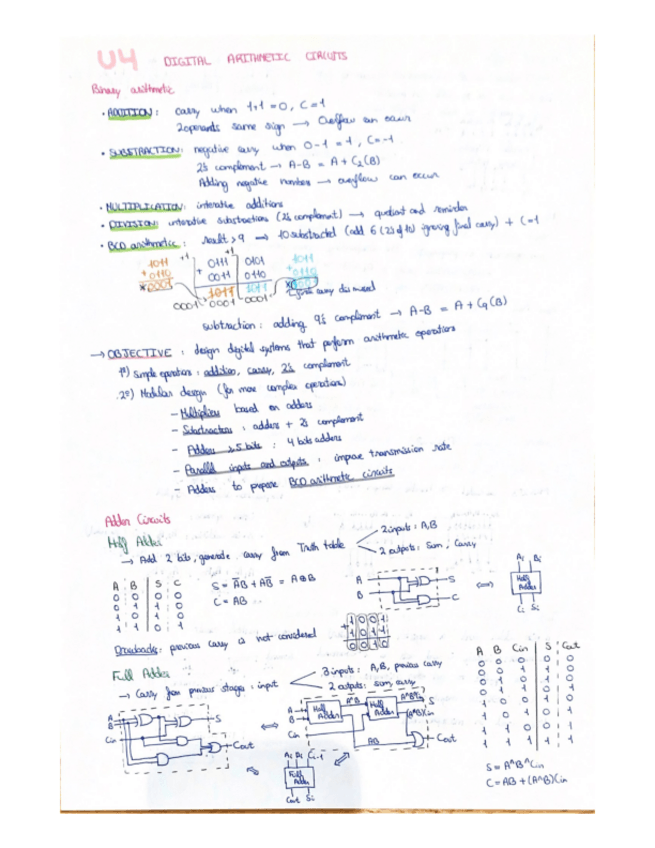 U4 DIGITAL ARITHMETIC CIRCUITS
Binary arithmetic
• ADDITION: carry when 1+1=0, C=1
2 operands same sign → Overflow can occur
• SUBSTRACTION: negative carry when 0-1=1, C=-1
2's complement → A-B = A + C2(B)
Adding negative numbers → overflow can occur
• MULTIPLICATION: interative additions
• DIVISION: interative substractions (2's complement) → quotient and reminder
• BCD arithmetic: result > 9 → 10 substracted (add 6 (2's of 10) ignoring final carry) + C=1
+1 +1
1011 0111 0101 1011
+0110 + 0011 0110 +0110
1011 1011
0001 0001 0001
subtraction: adding 9's complement → A-B = A + C9(B)
→ OBJECTIVE: design digital systems that perform arithmetic operations
1º) Simple operations: addition, carry, 2's complement
2º) Modular design (for more complex operations)
- Multipliers based on adders
- Substractors: adders + 2's complement
- Adders >5 bits: 4 bits adders
- Parallel inputs and outputs: improve transmission rate
- Adders to prepare BCD arithmetic circuits
Adder Circuits
Half Adder
→ Add 2 bits, generate carry from Truth table
2 inputs: A, B
2 outputs: Sum, Carry
A B S C
0 0 0 0
0 1 1 0
1 0 1 0
1 1 0 1
S = A̅B + AB̅ = A⊕B
C = AB
A
B
S
C
⇔
Ai Bi
Half Adder
Ci Si
Drawbacks: previous carry is not considered
Full Adder
→ Carry from previous stages: input
3 inputs: A, B, previous carry
2 outputs: sum, carry
A
B
Cin
S
Cout
⇔
A
B
Cin
Half Adder
A^B
Half Adder
(A^B)Cin
AB
S
Cout
Ai Bi Ci-1
Full Adder
Cout Si
A B Cin S Cout
0 0 0 0 0
0 0 1 1 0
0 1 0 1 0
0 1 1 0 1
1 0 0 1 0
1 0 1 0 1
1 1 0 0 1
1 1 1 1 1
S = A^B^Cin
C = AB + (A^B)Cin